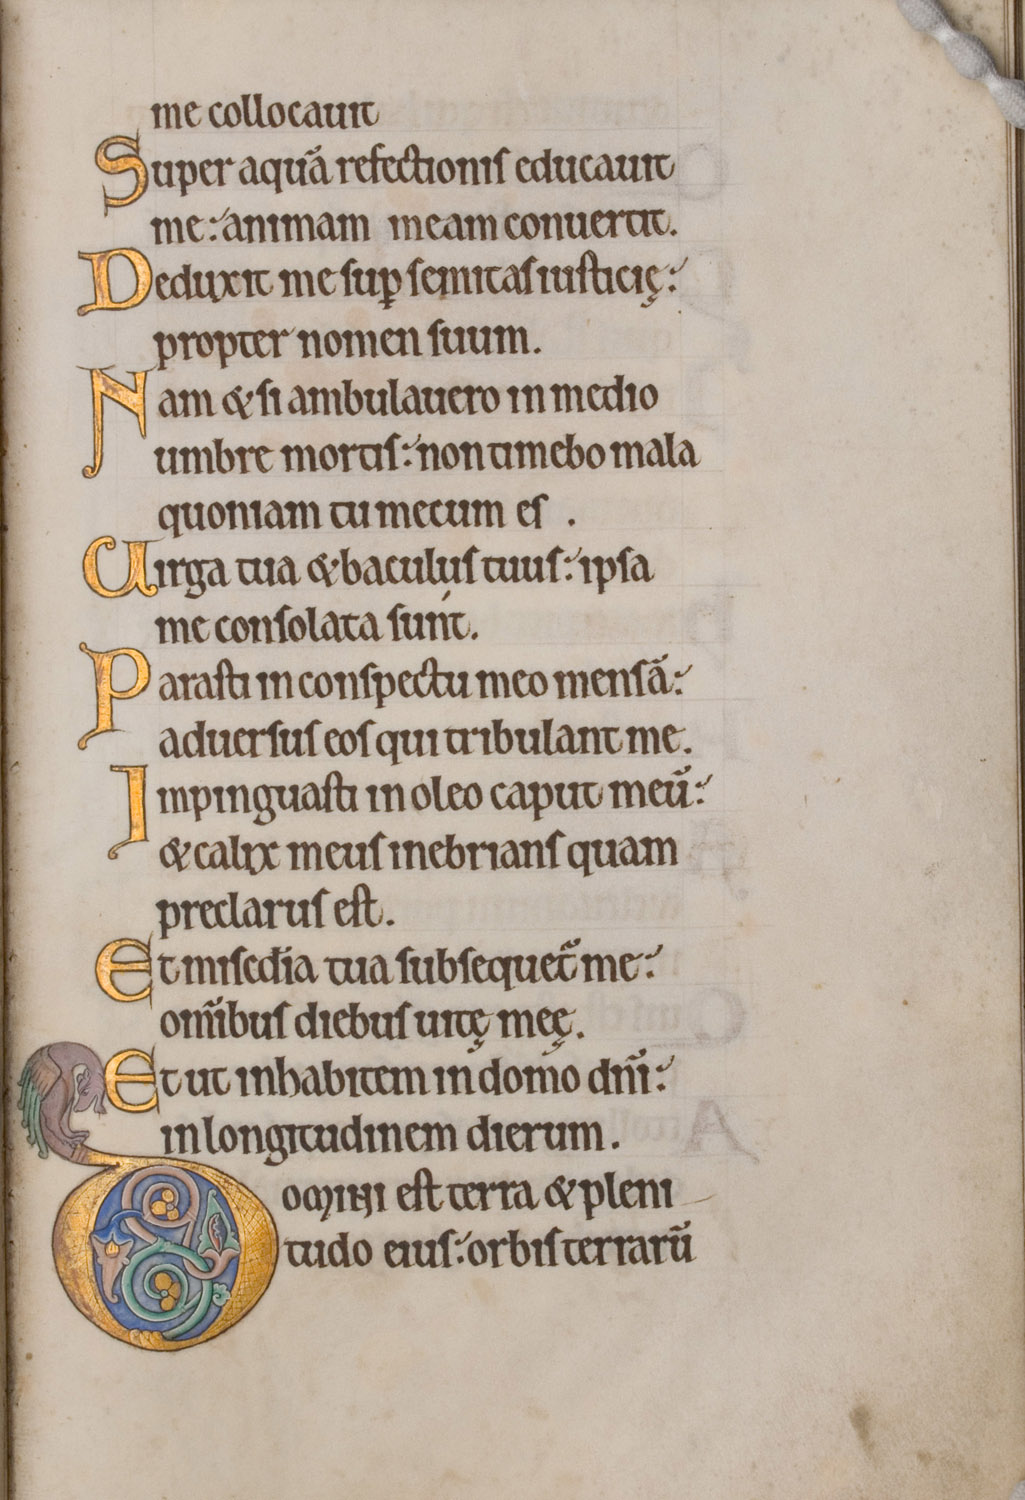 me collocauit
Super aquā refectionis educauit
me: animam meam conuertit.
Deduxit me sup̱ semitas iusticię:
propter nomen suum.
Nam & si ambulauero in medio
umbre mortis: non timebo mala
quoniam tu mecum es .
Uirga tua & baculus tuus: ipsa
me consolata sunt.
Parasti in conspectu meo mensā:
aduersus eos qui tribulant me.
Inpinguasti in oleo caput meū:
& calix meus inebrians quam
preclarus est.
Et misedīa tua subsequet̄ me:
om̄ibus diebus uitę meę.
Et ut inhabitem in domo dn̄i:
in longitudinem dierum.
Domini est terra & pleni
tudo eius: orbis terrarū